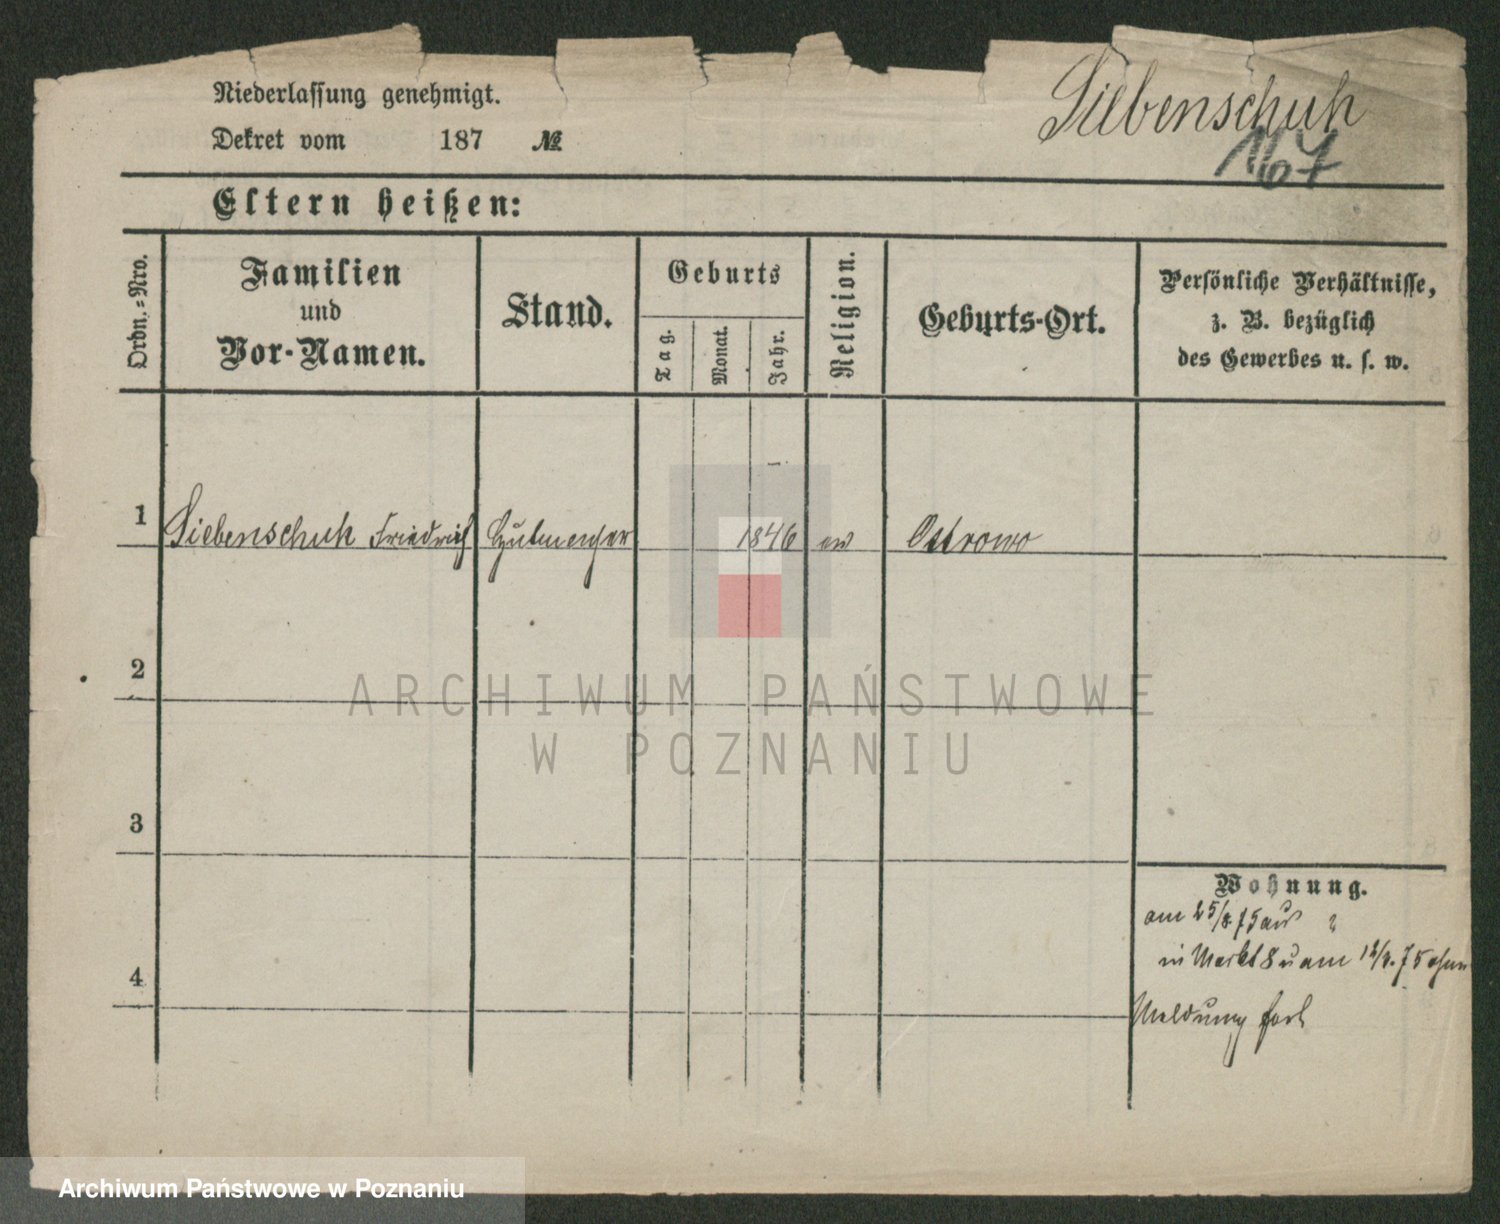 Niederlassung genehmigt.
Siebenschuh
Dekret vom 187 №
167
Eltern heißen:
Ordn.=Nro.
Familien
und
Vor-Namen.
Stand.
Geburts
Tag.
Monat.
Jahr.
Religion.
Geburts-Ort.
Persönliche Verhältnisse,
z. B. bezüglich
des Gewerbes u. s. w.
1 Siebenschuh Friedrich 1846 ev Ostrowo
2
ARCHIWUM PAŃSTWOWE
W POZNANIU
3
Wohnung.
am 25/8 75 aus
in Markt 8 u am 75 ohne
4
Meldung fort
Archiwum Państwowe w Poznaniu